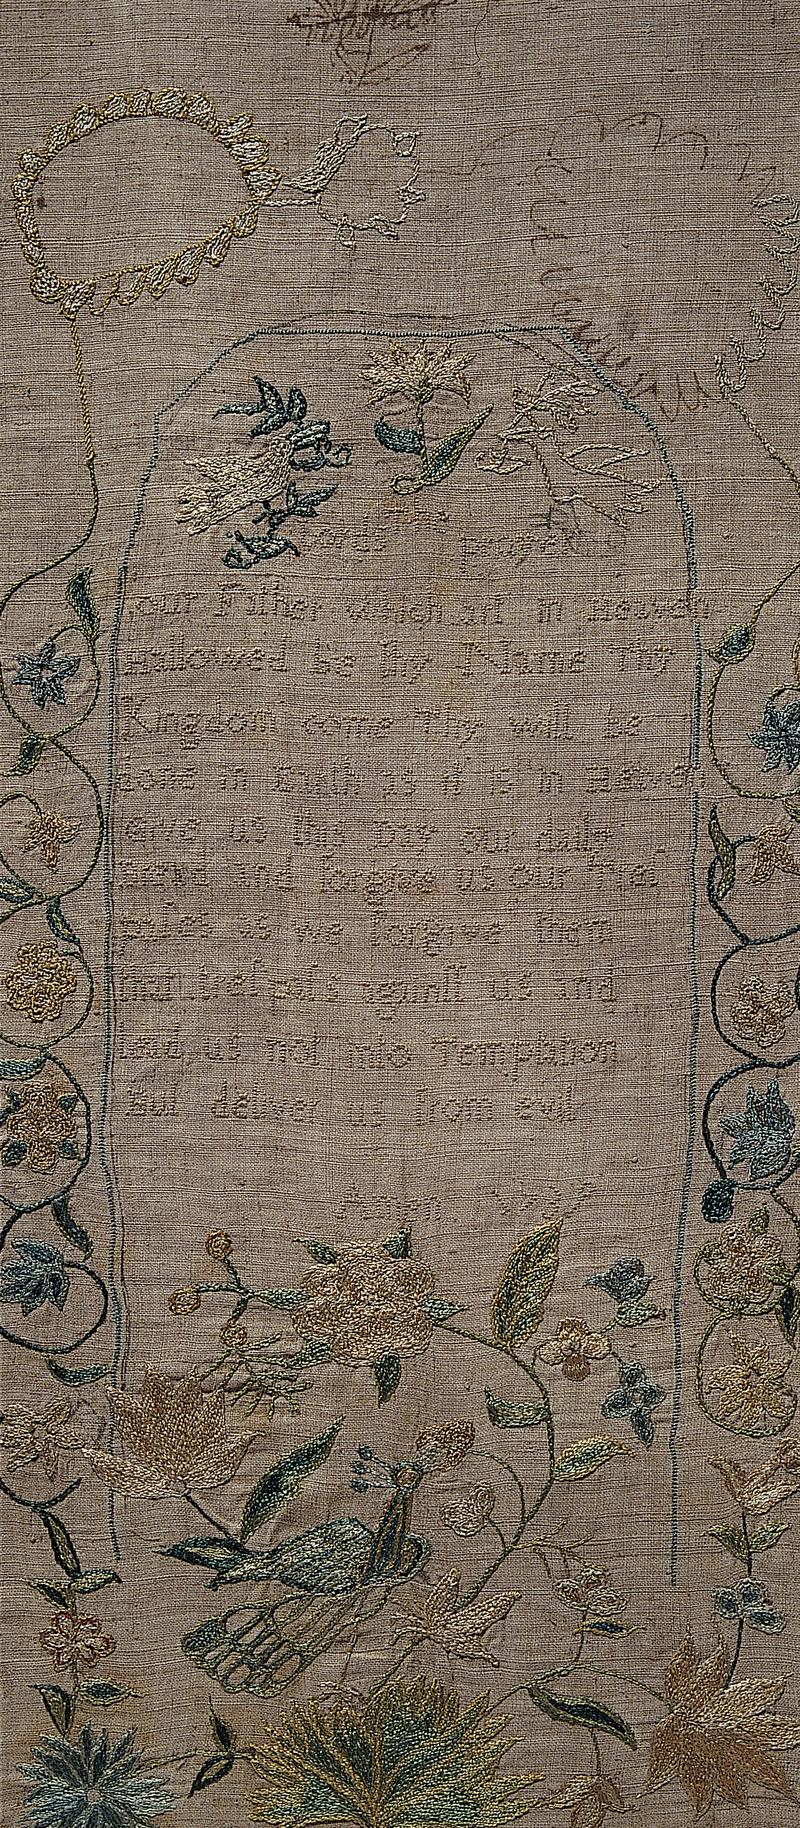 The
Lords prayer
our Father which art in Heaven
Hallowed be thy Name Thy
Kingdom come Thy will be
done in Earth as it is in Heaven
Give us this Day our daly
Bread and forgive us our tres
pases as we forgive them
than trespass against us and
lead us not into Temptation
But deliver us from evil
Amen